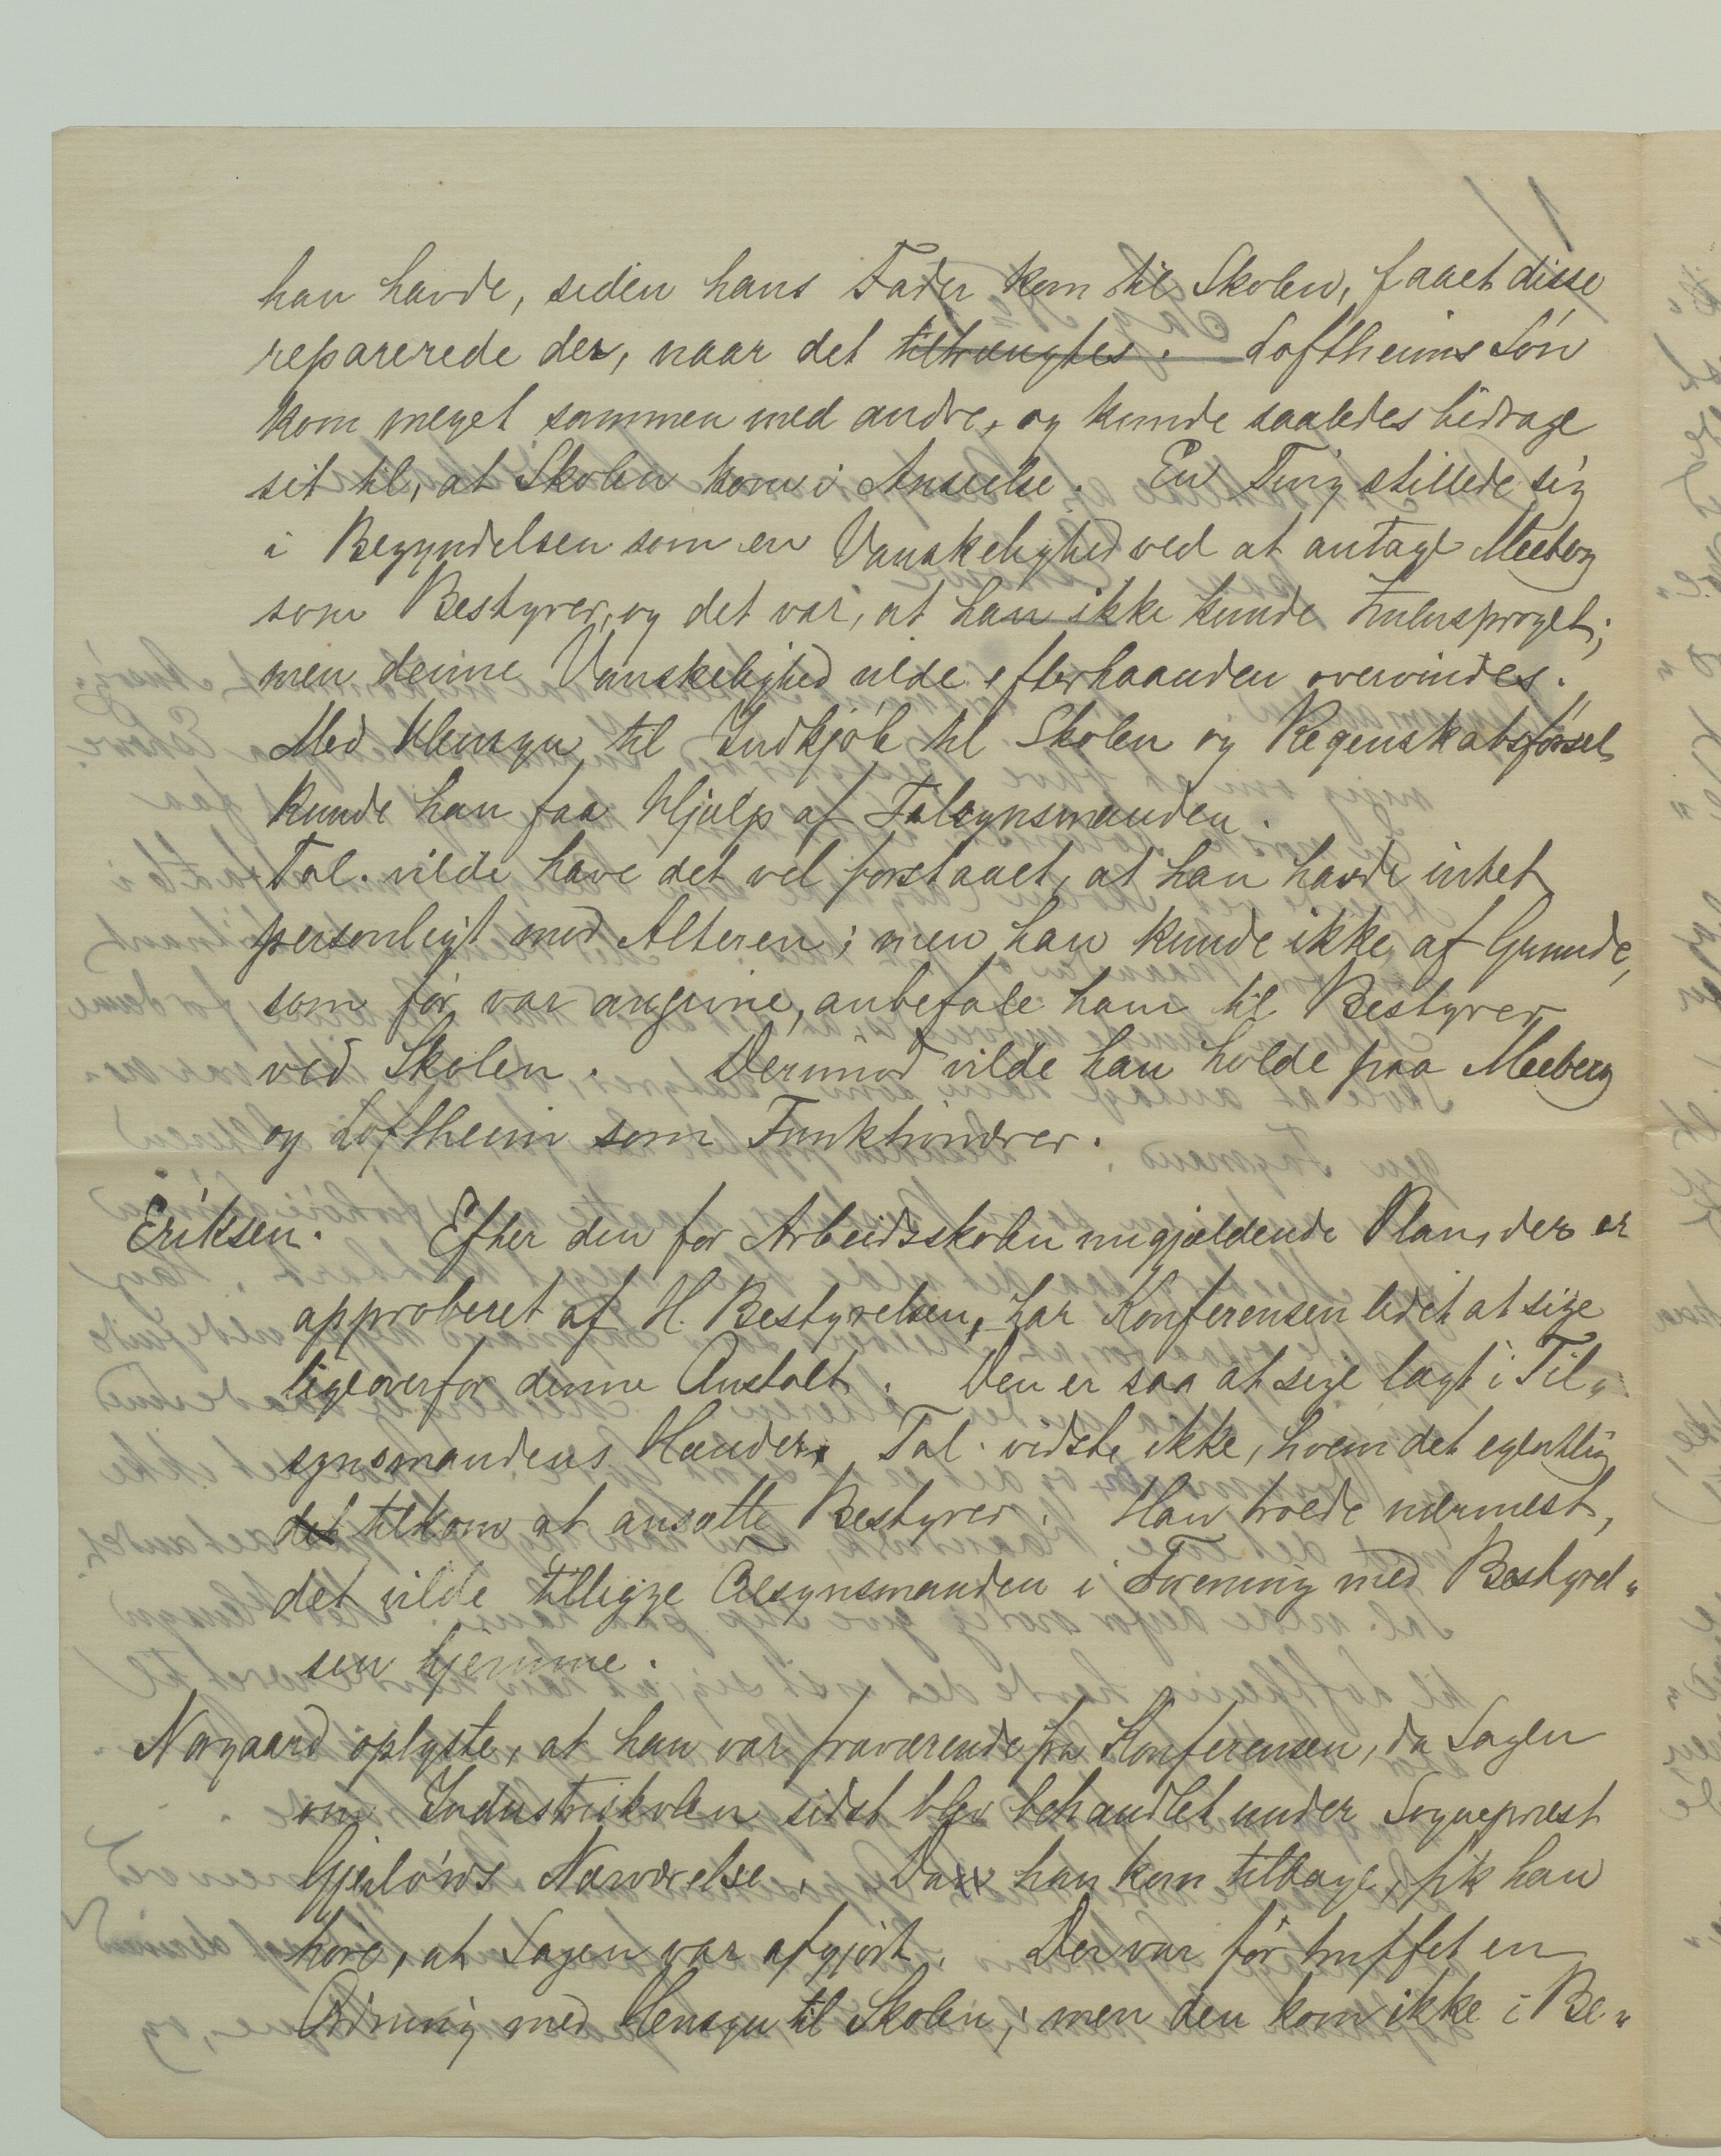 han havde, siden hans Fader kom til Skolen, faaet disse
reparerede der, naar det tiltrængtes. Loftheims Søn
kom meget sammen med andre, og kunde saaledes bidrage
sit til, at Skolen kom i Anseelse. En Ting stillede sig
i Begyndelsen som en Vanskelighed ved at antage Meeberg
som Bestyrer, og det var, at han ikke kunde Zulusproget;
men denne Vanskelighed vilde efterhaanden overvindes.
Med Hensyn til Indkjøb til Skolen og Regenskabsførsel
kunde han faa Hjælp af Tilsynsmanden.
Tal. vilde have det vel forstaaet, at han havde intet
personligt mod Alteren; men han kunde ikke af Grunde,
som før var angivne, anbefale ham til Bestyrer
ved Skolen. Derimod vilde han holde paa Meeberg
og Loftheim som Funktionærer.
Eriksen. Efter den for Arbeidsskolen nugjældende Plan, der er
approberet af H. Bestyrelsen, har Konferensen lidet at sige
ligeoverfor denne Anstalt. Den er saa at sige lagt i Til„
synsmandens Hænder. Tal. vidste ikke, hvem det egentlig
det tilkom at ansætte Bestyrer. Han troede nærmest,
det vilde tilligge Tilsynsmanden i Forening med Bestyrel„
sen hjemme.
Norgaard oplyste, at han var fraværende fra Konferensen, da Sagen
om Industriskolen sidst blev behandlet under Sogneprest
Gjerløws Nærværelse. Da han kom tilbage, fik han
høre, at Sagen var afgjort. Der var før truffet en
Ordning med Hensyn til Skolen; men den kom ikke i Be„